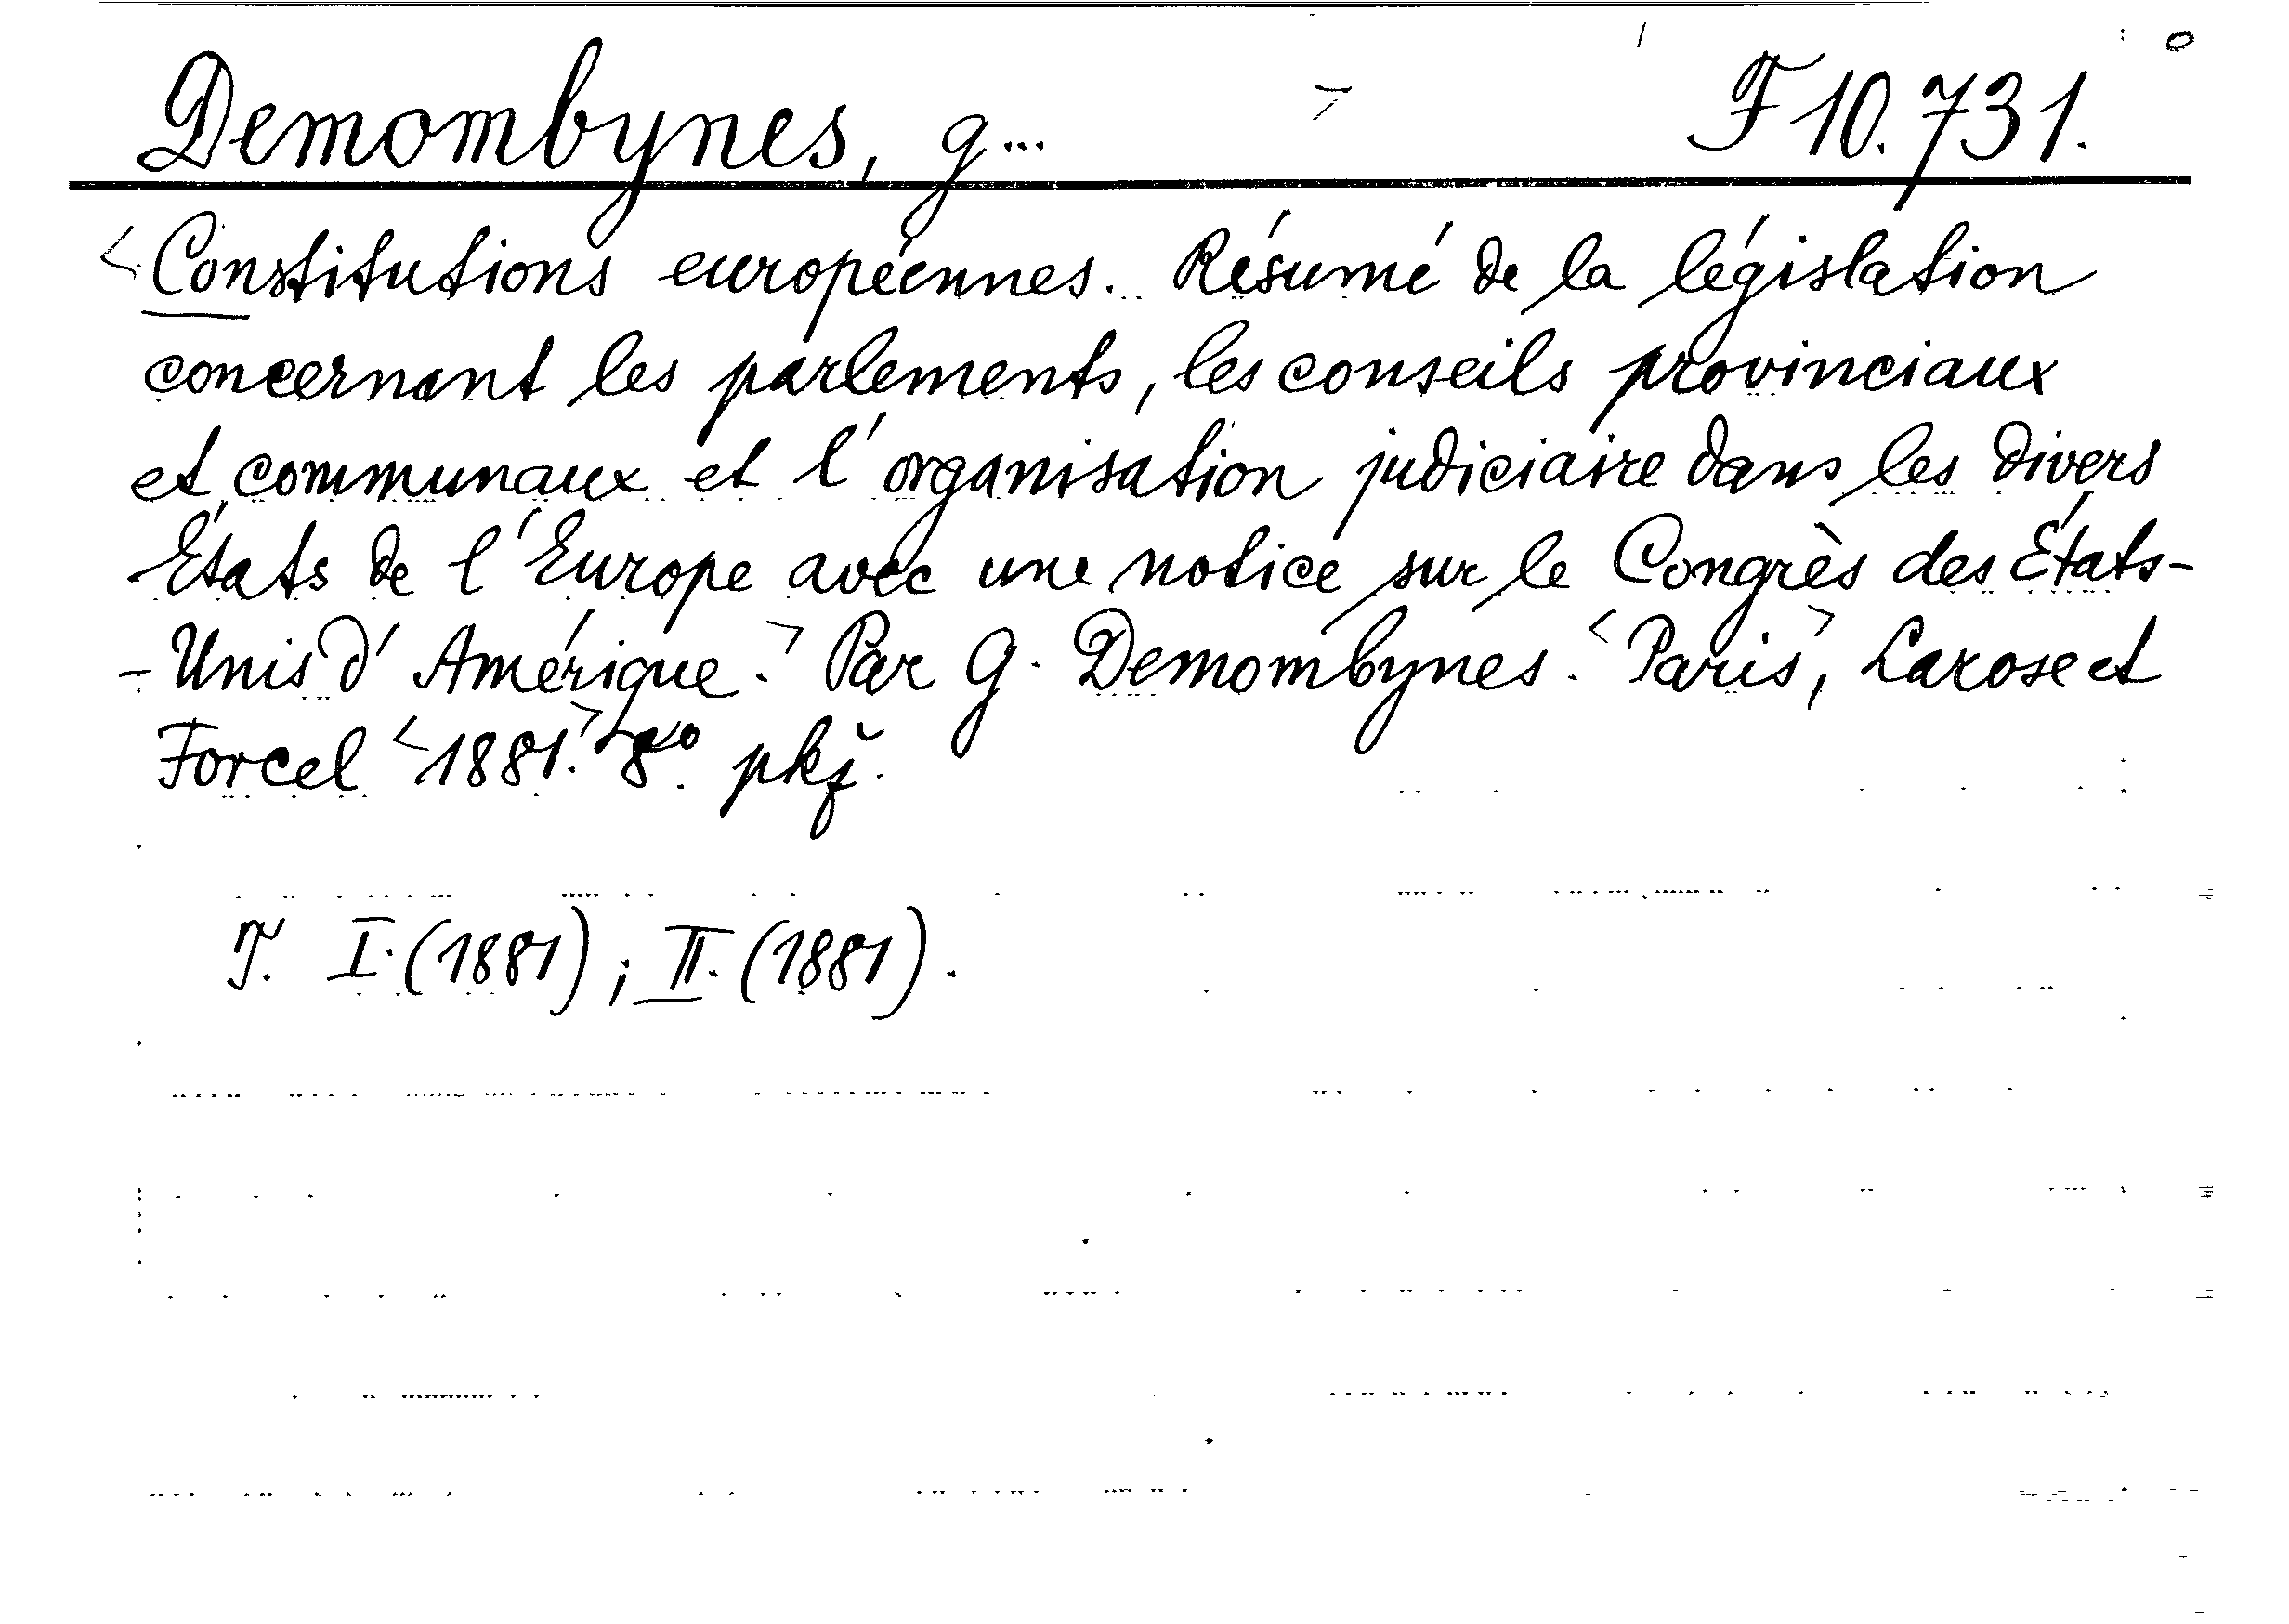 Demombynes, G... F 10.731.
Constitutions européennes. Résumé de la législation
concernant les parlements, les conseils provinciaux
et communaux et l'organisation judiciaire dans les divers
États de l'Europe avec une notice sur le Congrès des États-
-Unis d'Amérique. Par G. Demombynes. Paris, Larose et
Forcel 1881. 8° pkž.
T. I. (1881); II. (1881).